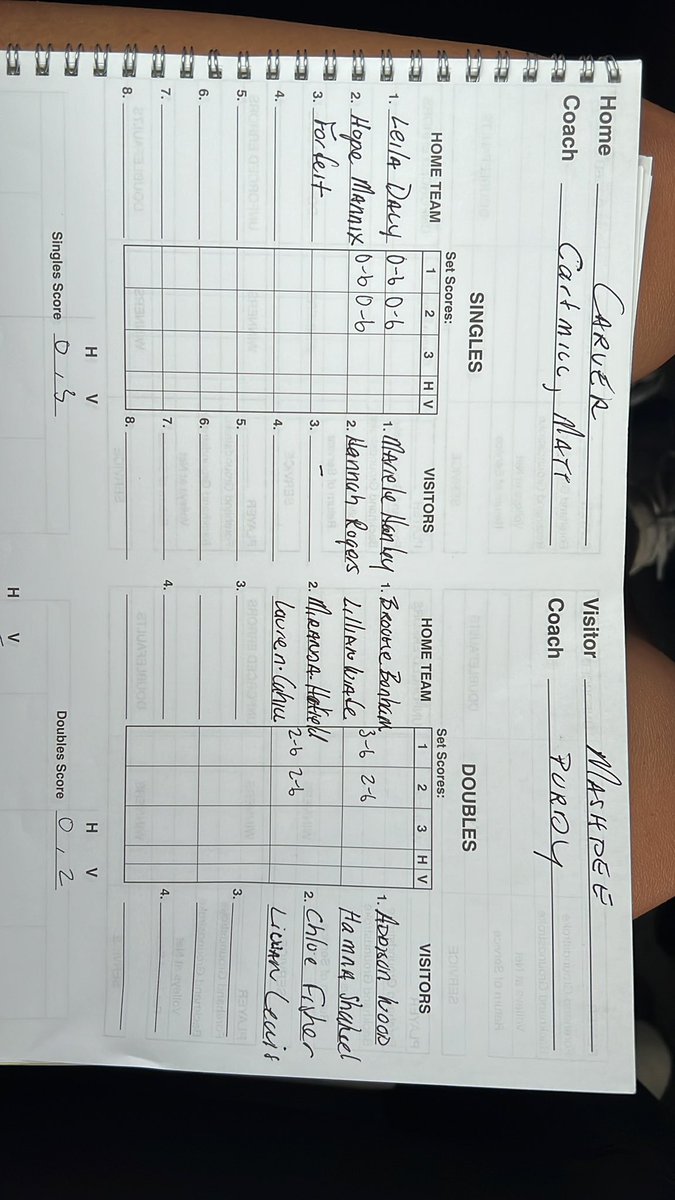 Home CARVER
Coach Cartmill, Matt
Visitor MASHPEE
Coach PURDY
SINGLES
Set Scores:
HOME TEAM 1 2 3 H V VISITORS
1. Leila Daly 0-6 0-6 1. Mariele Hanley
2. Hope Mannix 0-6 0-6 2. Hannah Rogers
3. Forfeit 3. -
4. 4.
5. 5.
6. 6.
7. 7.
8. 8.
H V
Singles Score 0, 3
DOUBLES
Set Scores:
HOME TEAM 1 2 3 H V VISITORS
1. Brooke Bonham 1. Addison Wood
Lillian 3-6 2-6 Hamna Shakeel
2. Miranda 2. Chloe Fisher
Lauren 2-6 2-6 Lillian Lewis
3. 3.
4. 4.
H V
Doubles Score 0, 2
H V